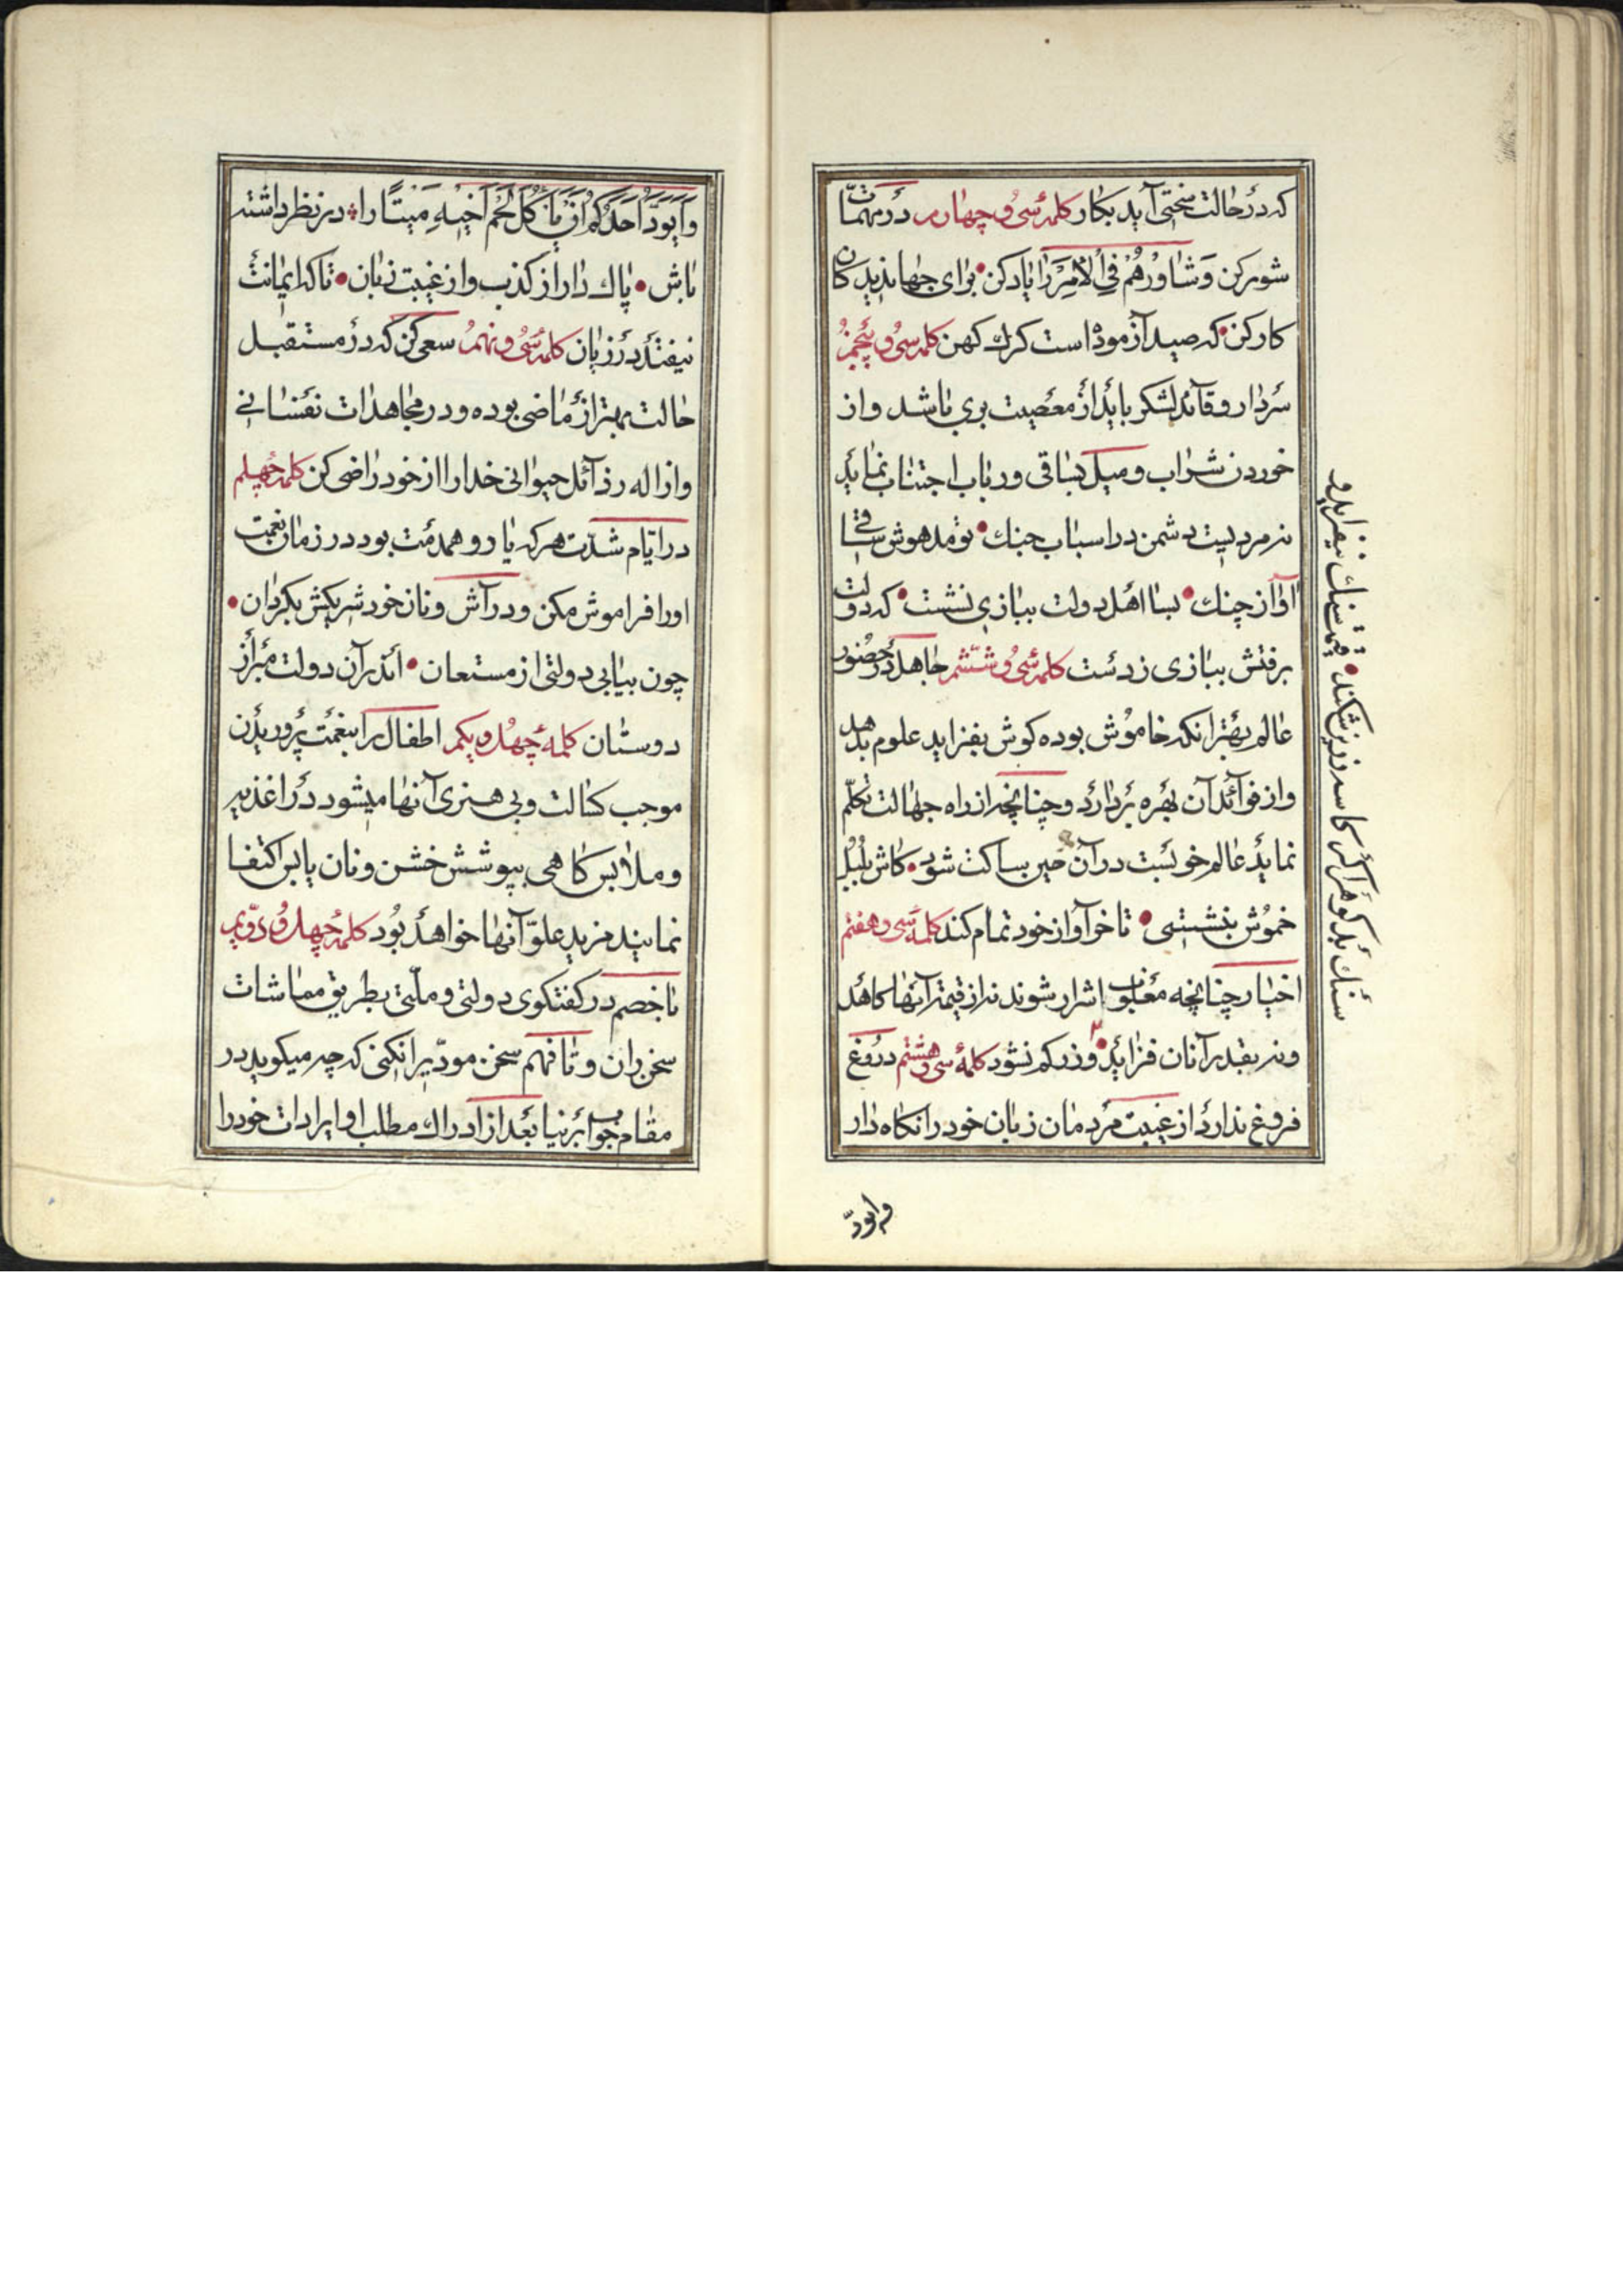 که در حالت سختی آید بکار کلمهٔ سی و چهارم در مهمات
شور کن وَشَاوِرْهُمْ فِي الْاَمْرِ را یاد کن • برای جهاندیدکان
کار کن • که صید آزمودا است کرک کهن کلمهٔ سی و پنجم
سردار و قآئد لشکر باید از معصیت بری باشد و از
خوردن شراب و میل بساقی و رباب اجتناب نماید
نه مردیست دشمن در اسباب جنك • تو مدهوش ساقی
آواز چنك • بسا اهل دولت ببازی نشست • که دولت
برفتش ببازی ز دست کلمهٔ سی و ششم جاهل در حضور
عالم بهتر انکه خاموش بوده کوش بفزاید علوم بدهد
و از فوآئد آن بهره بردارد و چنانچه از راه جهالت تکلّم
نماید عالم خویست در آن حین ساکت شود • کاش بلبل
خموش بنشستی • تا خر آواز خود تمام کند کلمهٔ سی و هفتم
اخیار چنانچه مغلوب اشرار شوند نه از قیمة آنها کاهد
و نه بقدر آنان فزاید • و زر کم نشود کلمهٔ سی و هشتم دروغ
فروغ ندارد از غیبت مردمان زبان خود را نکاه دار
سنك بد کوهر اکر کاسه زرین شکند • قیمت سنك نیفزاید و
و ایودّ
وَاَیَوَدُّ اَحَدُكُمْ اَنْ يَاْكُلَ لَحْمَ اَخِيهِ مَيْتًا را در نظر داشته
باش • پاك دار از کذب و از غیبت زبان • تا که ایمانت
نیفتد در زیان کلمهٔ سی و نهم سعی کن که در مستقبل
حالت بهتر از ماضی بوده و در مجاهدات نفسانی
و ازاله رذآئل حیوانی خدا را از خود راضی کن کلمهٔ چهلم
در ایّام شدّت هر که یار و همدمت بود در زمان نعمت
او را فراموش مکن و در آش و نان خود شریکش بکردان •
چون بیابی دولتی از مستعان • اندر آن دولت مبر از
دوستان کلمهٔ چهل و یکم اطفال را بنعمت پروریدن
موجب کسالت و بی هنری آنها میشود در اغذیه
و ملابس کاهی بپوشش خشن و نان یابس اکتفا
نمایند مزید علوّ آنها خواهد بود کلمهٔ چهل و دوّیم
با خصم در کفتکوی دولتی و ملّتی بطریق مماشات
سخن ران و تا فهم سخن مودّیرا نکنی که چه میکوید در
مقام جواب برنیا بعد از ادراك مطلب او ایرادات خود را